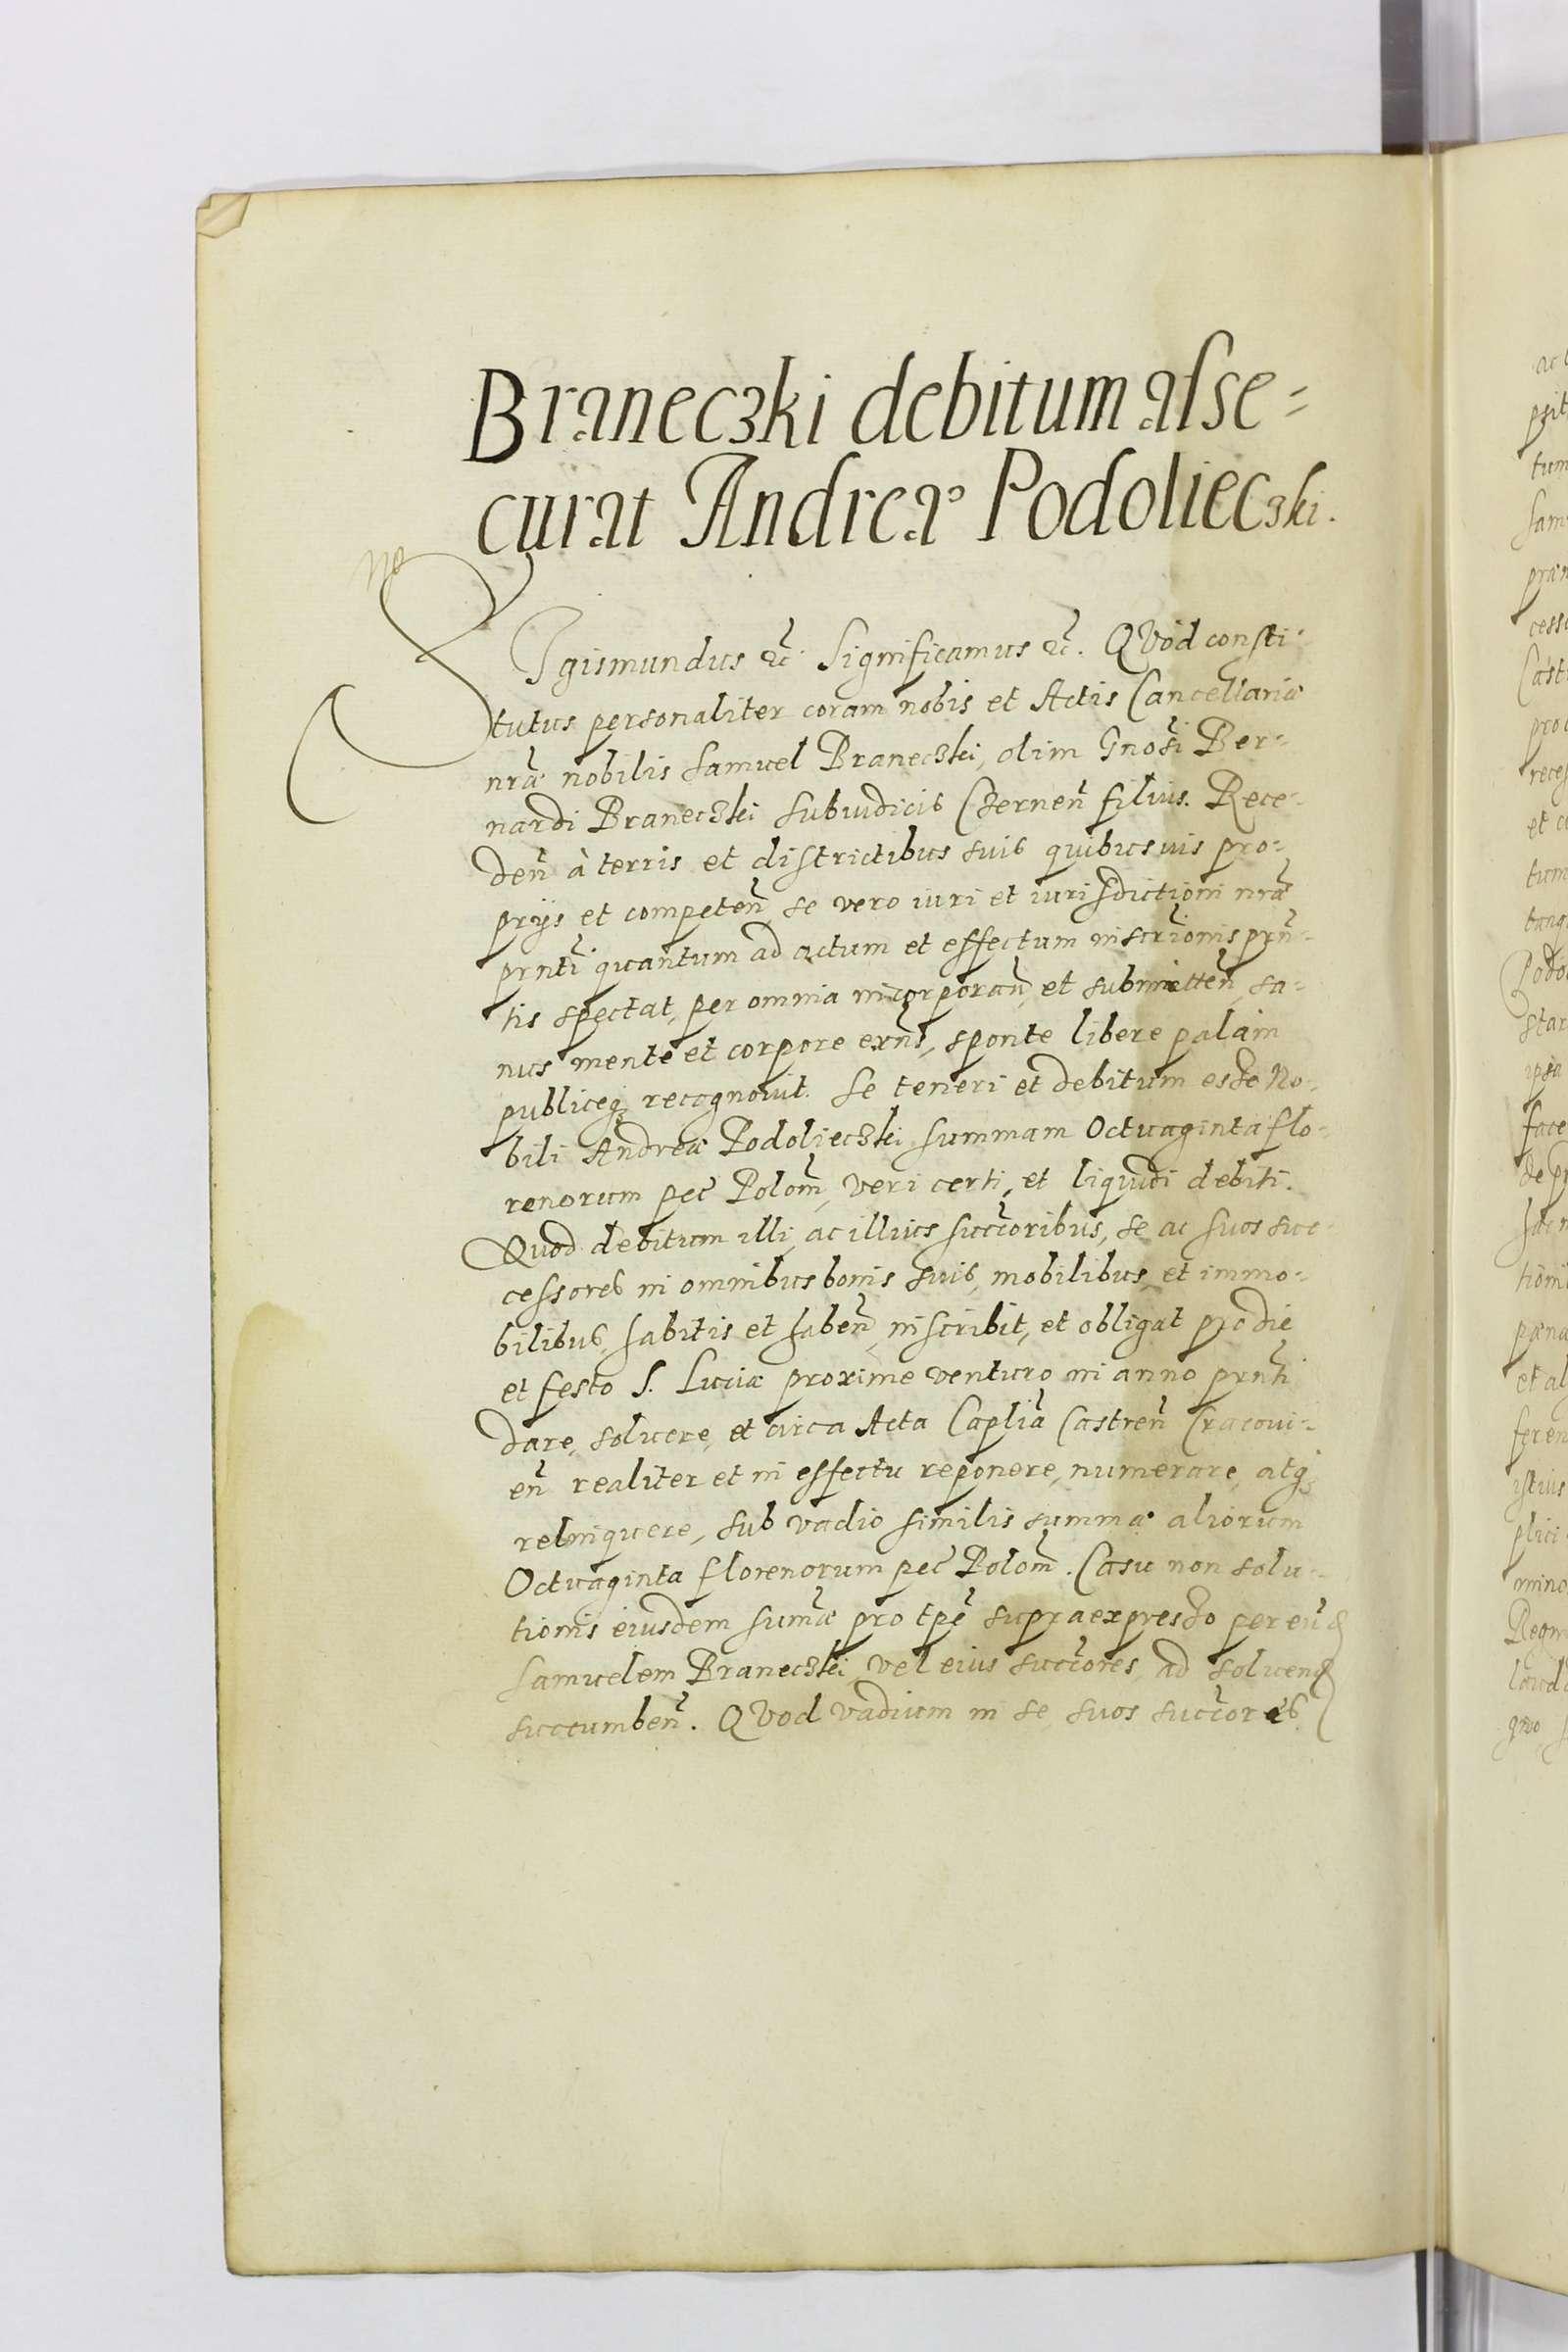 Braneczki debitum asse-
curat Andreæ Podolieczki.
SIgismundus etc. Significamus etc. QVod consti-
tutus personaliter coram nobis et Actis Cancellariæ
nræ nobilis Samuel Braneczki, olim Gnosi Ber-
nardi Braneczki Subiudicis Czernen̄ filius. Rece-
den̄ à terris et districtibus suis quibusuis pro-
prijs et competen̄, se vero iuri et iurisdictioni nræ
prnti quantum ad actum et effectum inscrionis prn-
tis spectat, per omnia incorporan̄, et submitten̄, sa-
nus mente et corpore exn̄s, sponte libere palam
publiceq; recognouit. Se teneri et debitum esse No-
bili Andreæ Podolieczki summam Octuaginta flo-
renorum pec Polom̄, veri certi, et liquidi debiti.
Quod debitum illi, ac illius succoribus, se ac suos suc-
cessores in omnibus bonis suis, mobilibus, et immo-
bilibus, habitis et haben̄, inscribit, et obligat pro die
et festo S. Luciæ proxime venturo in anno prnti
dare, soluere, et circa Acta Caplia Castren̄ Cracoui-
en̄ realiter et in effectu reponere, numerare, atq;
relinquere, sub vadio similis summæ aliorum
Octuaginta florenorum pec Polom̄. Casu non solu-
tionis eiusdem sum̄æ pro tpe supraexpresso per eund
Samuelem Braneczki, vel eius succores, ad soluend
succumben̄. QVod vadium in se, suos succores